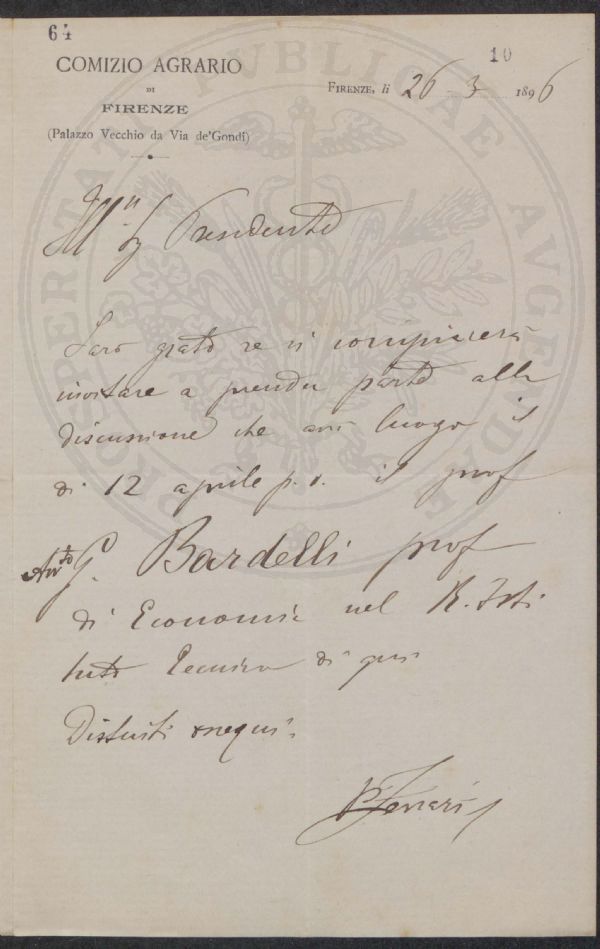 64
10
COMIZIO AGRARIO
DI
FIRENZE
(Palazzo Vecchio da Via de'Gondi)
FIRENZE, li 26 3 1896
PROSPERITATI PVBLICAE AVGENDAE
Ill.mo Sig Presidente
Sarò grato se si compiacerà
invitare a prender parte alla
discussione che avrà luogo il
di 12 aprile p. v. il prof
G. Bardelli prof
di Economia nel R. Isti
tuto Tecnico di qui
Distinti ossequi
Ferrari